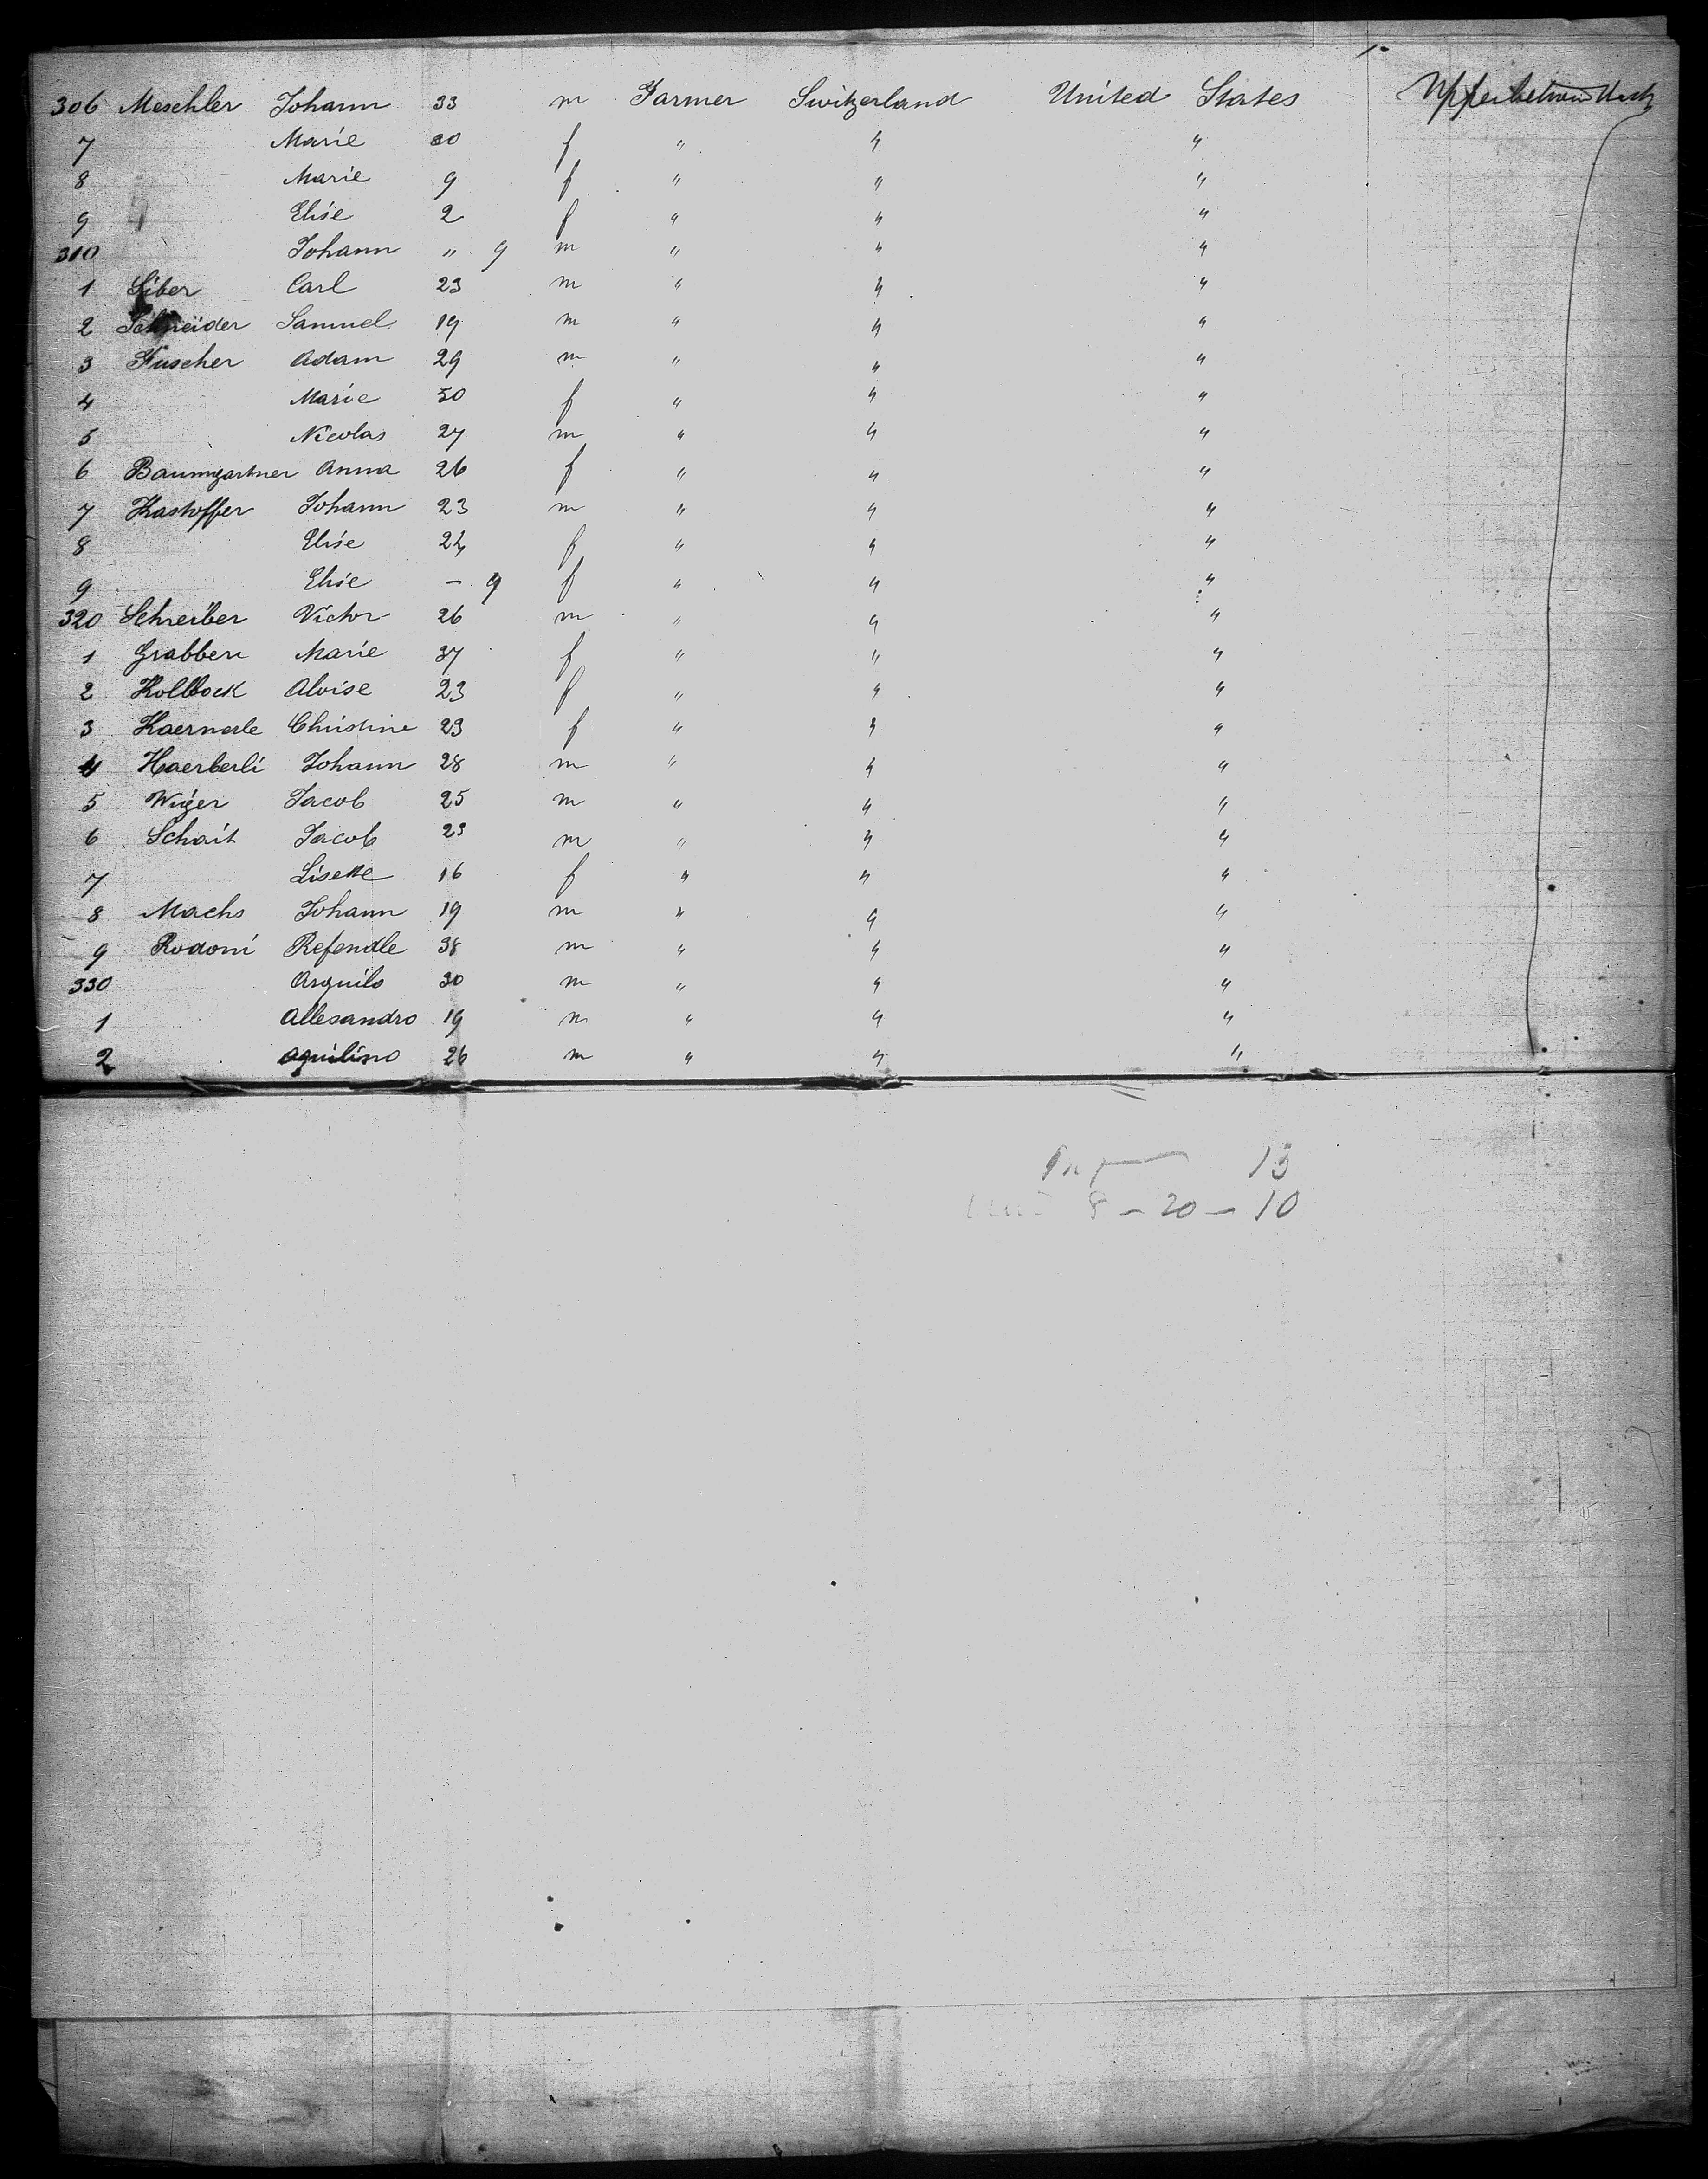 306 Meschler Johann 33 m Farmer Switzerland United States Upper between Deck
7 Marie 30 f " " "
8 Marie 9 f " " "
9 Elise 2 f " " "
310 Johann " 9 m " " "
1 Siber Carl 23 m " " "
2 Schneider Samuel 19 m " " "
3 Fuscher Adam 29 m " " "
4 Marie 50 f " " "
5 Nicolas 27 m " " "
6 Baumgartner Anna 26 f " " "
7 Kasthoffer Johann 23 m " " "
8 Elise 24 f " " "
9 Elise – 9 f " " "
320 Schreiber Victor 26 m " " "
1 Grabben Marie 37 f " " "
2 Kollbock Aloise 23 f " " "
3 Kaernerle Christine 23 f " " "
4 Haerberli Johann 28 m " " "
5 Wiger Jacob 25 m " " "
6 Schait Jacob 23 m " " "
7 Lisette 16 f " " "
8 Machs Johann 19 m " " "
9 Rodoni Refendle 38 m " " "
330 Arquilo 30 m " " "
1 Allesandro 19 m " " "
2 Aquilino 26 m " " "
13
8 – 20 – 10